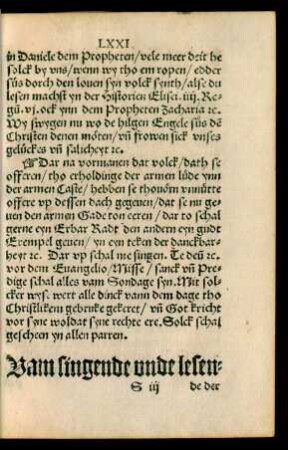 LXXI
in Daniele dem Propheten/vele meer deit he
solck by vns/wenn wy tho em ropen/edder
süs dorch den louen syn volck senth/alse du
lesen machst yn der Historien Elisei. iiij. Re-
gū. vj. ock ynn dem Propheten Zacharia ꝛc.
Wy swygen nu wo de hilgen Engele süs dē
Christen denen möten/vñ frowen sick vnses
gelückes vñ salicheyt ꝛc.
Dar na vormanen dat volck/dath se
offeren/tho erholdinge der armen lüde ynn
der armen Caste/hebben se thouörn vnnütte
offere vp dessen dach gegeuen/dat se nu ge-
uen den armen Gade ton eeren/dar to schal
gerne eyn Erbar Radt den andern eyn gudt
Exempel geuen/yn eyn teken der danckbar-
heyt ꝛc. Dar vp schal me singen. Te deū ꝛc.
vor dem Euangelio/Misse/sanck vñ Pre-
dige schal alles vam Sondage syn. Mit sol-
cker wys. wert alle dinck vann dem dage tho
Christlikem gebruke gekeret/vñ Got kricht
vor syne woldat syne rechte ere. Solck schal
gescheen yn allen parren.
Vam singende vnde lesen-
S iij de der